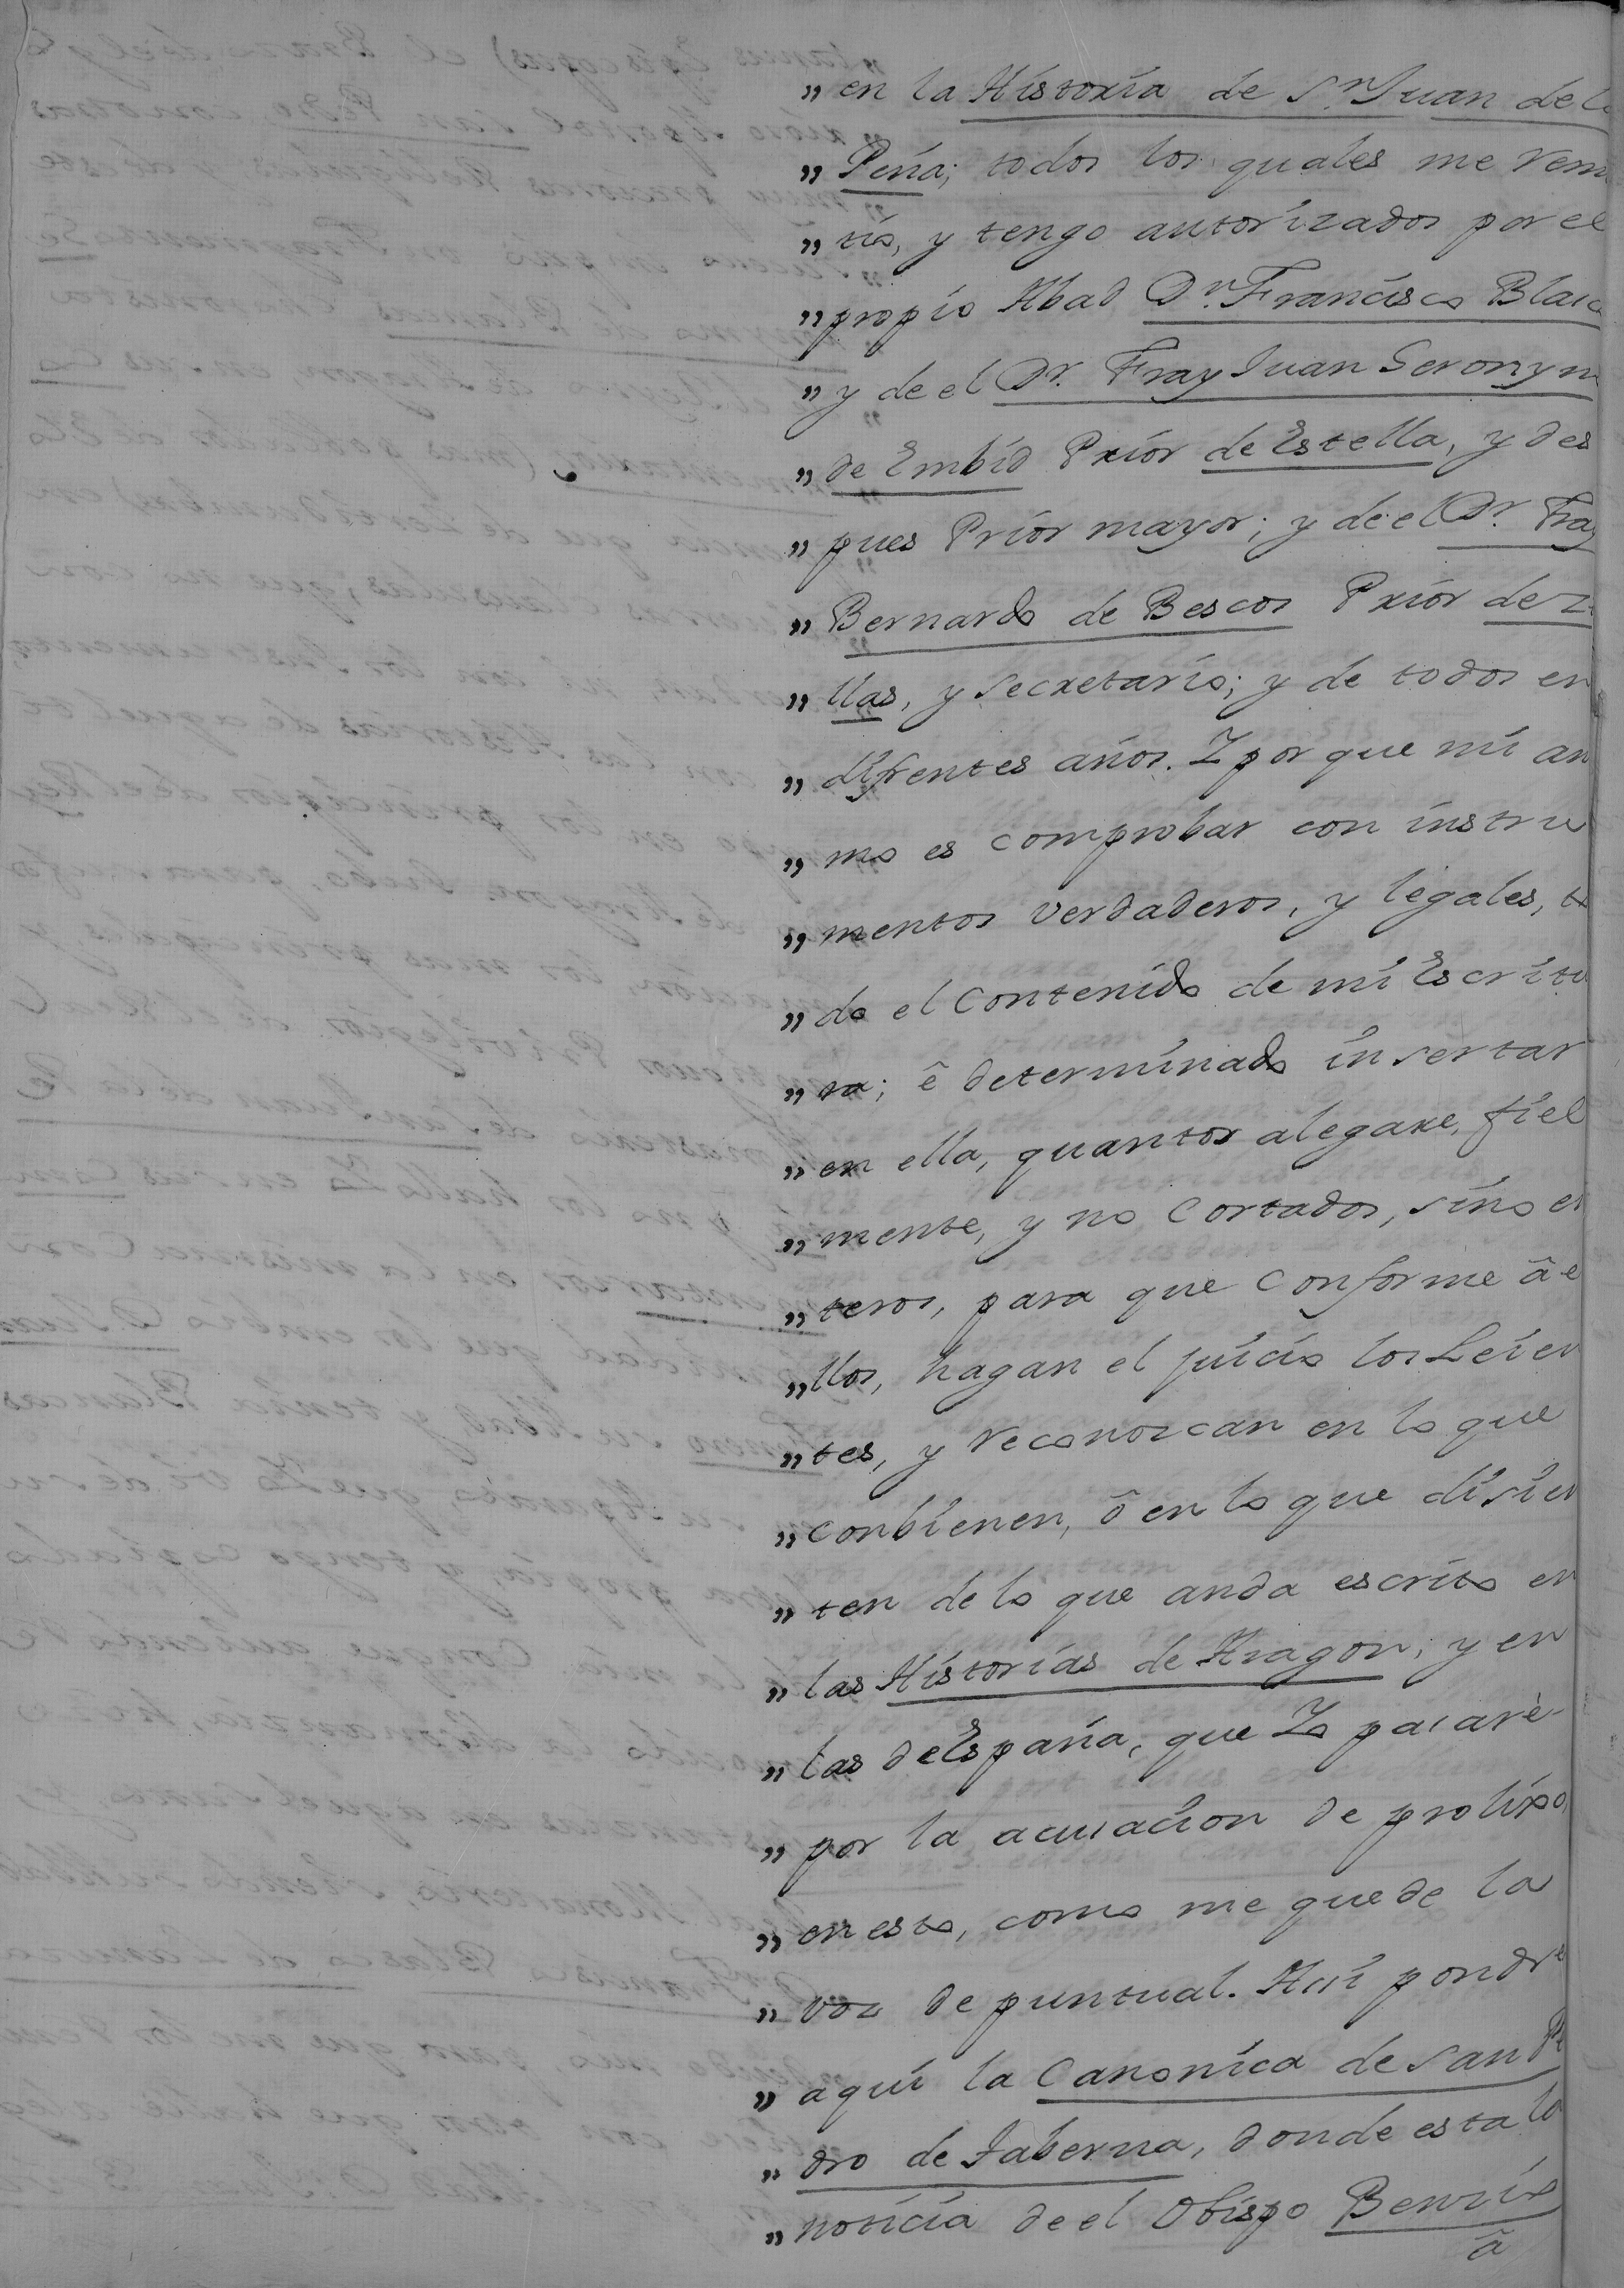 „ en la Historia de Sn Juan de la
„ Peña; todos los quales me remi
„ tió, y tengo autorizados por el
„ propio Abad Dr. Francisco Blasc
„ y de el Dr. Fray Juan Geronym
„ de Embid Prior de Estella, y des
„ pues Prior mayor; y de el Dr. Fray
„ Bernardo de Bescos Prior de
„ llas, y secretario; y de todos en
„ difrentes años. Y por que mi ani
„ mo es comprobar con instru
„ mentos verdaderos, y legales, to
„ do el Contenido de mi Escritu
„ ra; ê determinado insertar
„ en ella, quantos alegare, fiel
„ mente, y no Cortados, sino en
„ teros, para que Conforme â e
„ llos, hagan el juicio los Leien
„ tes, y reconozcan en lo que
„ conbienen, ô en lo que disien
„ ten de lo que anda escrito en
„ las Historias de Aragon; y en
„ las de España, que Yo pasarè
„ por la acusacion de prolixo,
„ en esto, como me quede la
„ voz de puntual. Assi pondrè
„ aqui la Canonica de San Pe
„ dro de Taberna, donde esta la
„ noticia de el Obispo Benzio
â